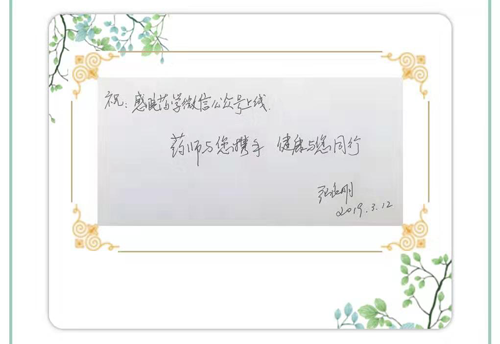 祝：药学微信公众号上线.
药师与您携手 健康与您同行
2019.3.12